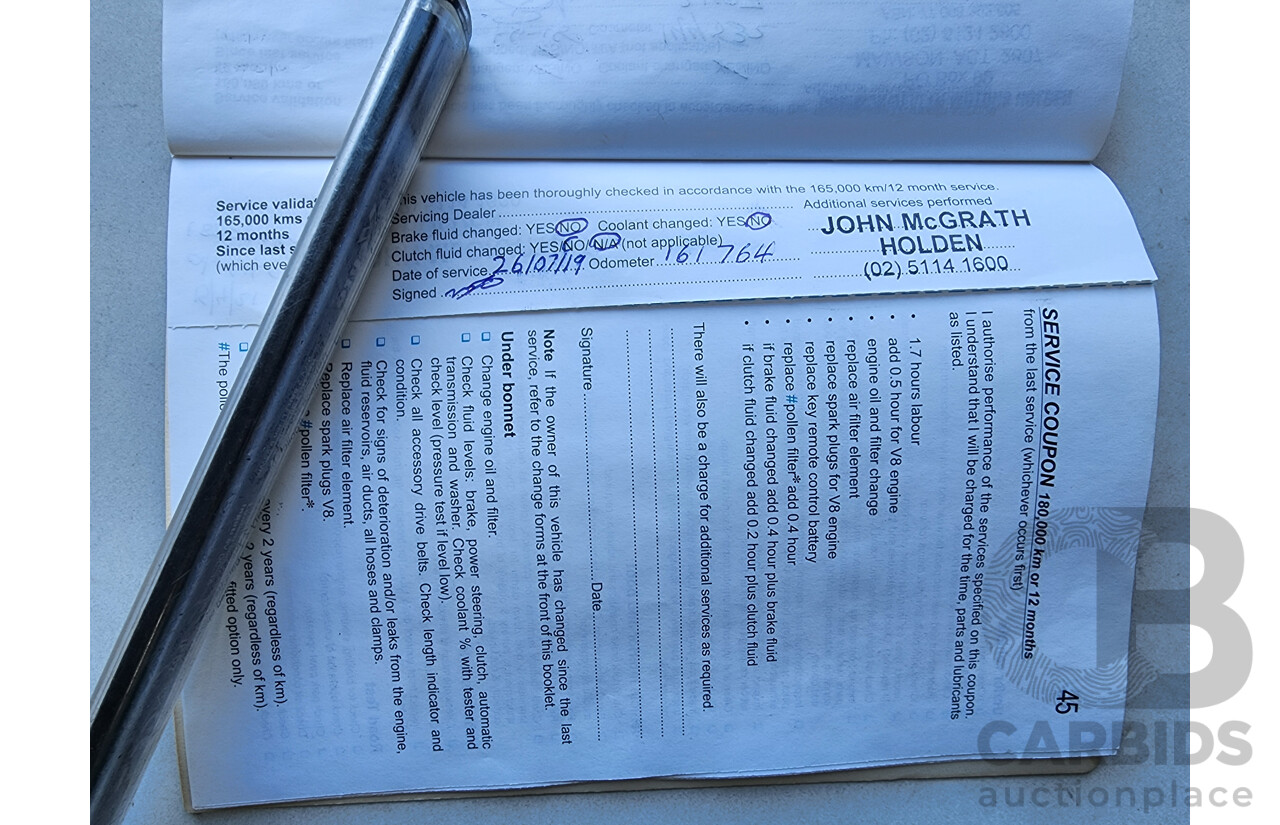 Service valida
165,000 kms
12 months
Since last s
(which eve
his vehicle has been thoroughly checked in accordance with the 165,000 km/12 month service.
Servicing Dealer
Additional services performed
Brake fluid changed: YES/NO Coolant changed: YES/NO
Clutch fluid changed: YES/NO/N/A (not applicable)
Date of service 26/07/19 Odometer 161 764
Signed
JOHN McGRATH
HOLDEN
(02) 5114 1600
45
SERVICE COUPON 180,000 km or 12 months
from the last service (whichever occurs first)
I authorise performance of the services specified on this coupon.
I understand that I will be charged for the time, parts and lubricants
as listed.
• 1.7 hours labour
• add 0.5 hour for V8 engine
• engine oil and filter change
• replace air filter element
• replace spark plugs for V8 engine
• replace key remote control battery
• replace #pollen filter* add 0.4 hour
• if brake fluid changed add 0.4 hour plus brake fluid
• if clutch fluid changed add 0.2 hour plus clutch fluid
There will also be a charge for additional services as required.
Signature Date
Note If the owner of this vehicle has changed since the last
service, refer to the change forms at the front of this booklet.
Under bonnet
Change engine oil and filter.
Check fluid levels: brake, power steering, clutch, automatic
transmission and washer. Check coolant % with tester and
check level (pressure test if level low).
Check all accessory drive belts. Check length indicator and
condition.
Check for signs of deterioration and/or leaks from the engine,
fluid reservoirs, air ducts, all hoses and clamps.
Replace air filter element.
Replace spark plugs V8.
#pollen filter*.
every 2 years (regardless of km).
2 years (regardless of km).
#The polle fitted option only.
CARBIDS
auctionplace